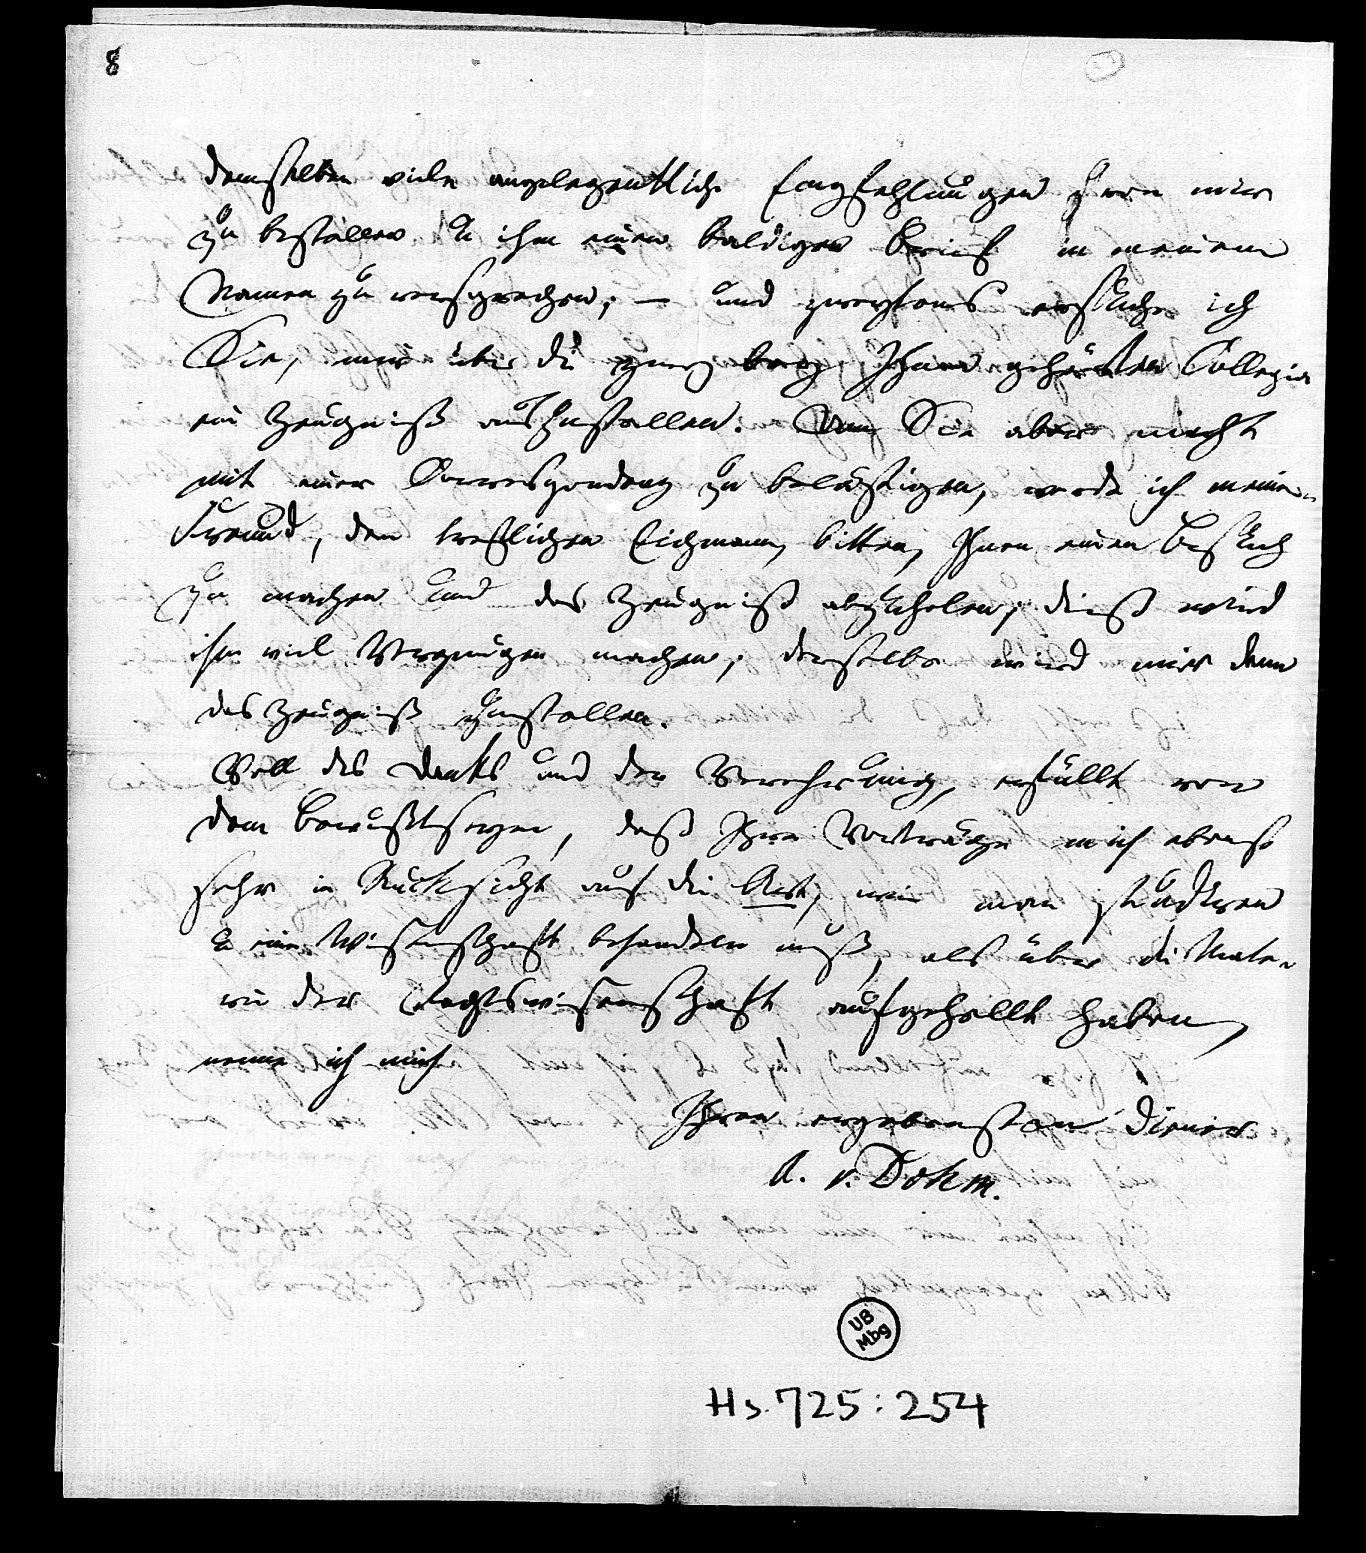 8
demselben viele angelegentliche Empfehlungen von mir
zu bestellen u ihm einen baldigen Brief in meinem
Namen zu versprechen; – und zweytens ersuche ich
Sie, mir über die bey Ihnen gehörten Collegia
ein Zeugniß auszustellen. Um Sie aber nicht
mit einer Correspondenz zu belästigen, werde ich meinen
Freund, den trefflichen Eichmann, bitten, Ihnen einen Besuch
zu machen und das Zeugniß abzuholen; dieß wird
ihm viel Vergnügen machen; derselbe wird mir dann
das Zeugniß zustellen.
Voll des Danks und der Verehrung, erfüllt von
dem Bewußtseyn, daß Ihre Vorträge mich ebenso
sehr in Rücksicht auf die Art, wie man studiren
u eine Wissenschaft behandeln muß, als über die Mate-
rie der Rechtswissenschaft aufgehellt haben,
nenne ich mich
Ihren ergebensten Diener
A. v. Dohm.
UB
Mbg
Hs. 725:254